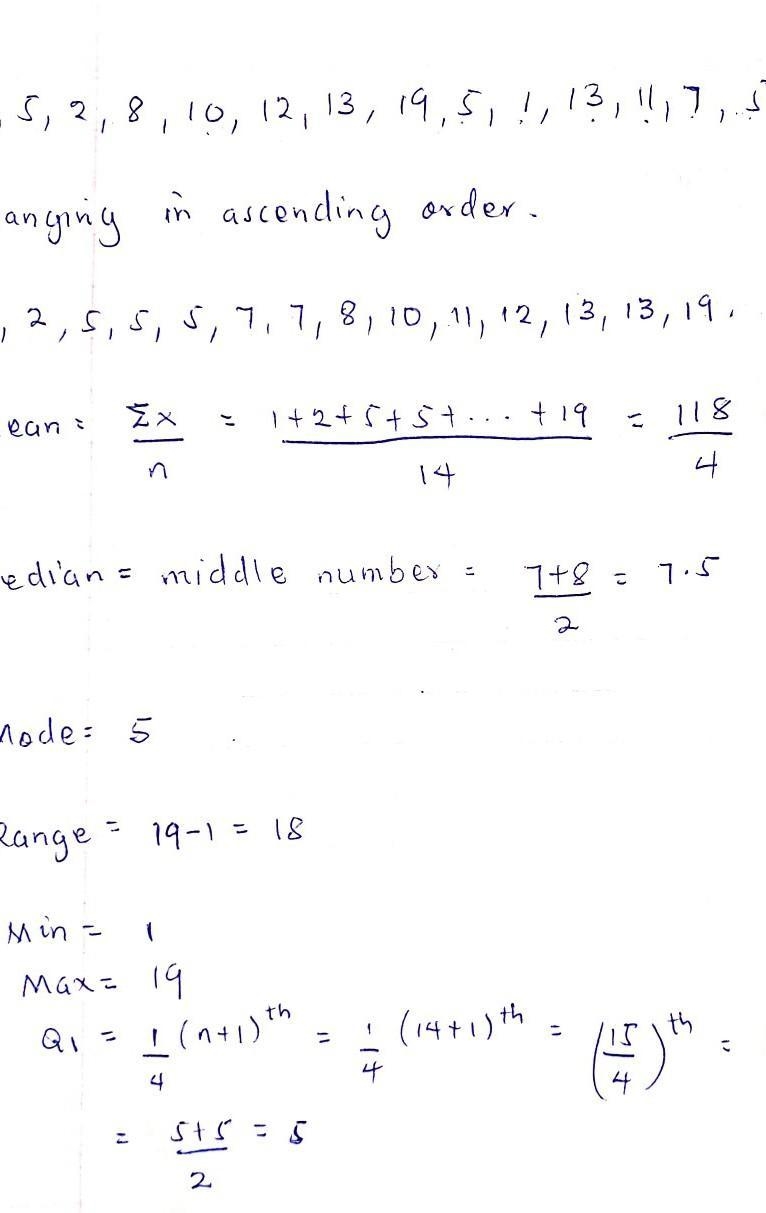 5, 2, 8, 10, 12, 13, 19, 5, 1, 13, 11, 7, 5
anging in ascending order.
, 2, 5, 5, 5, 7, 7, 8, 10, 11, 12, 13, 13, 19.
ean = Σx/n = 1+2+5+5+...+19/14 = 118/4
edian = middle number = 7+8/2 = 7.5
Mode = 5
Range = 19-1 = 18
Min = 1
Max = 19
Q1 = 1/4 (n+1)th = 1/4 (14+1)th = (15/4)th =
= 5+5/2 = 5